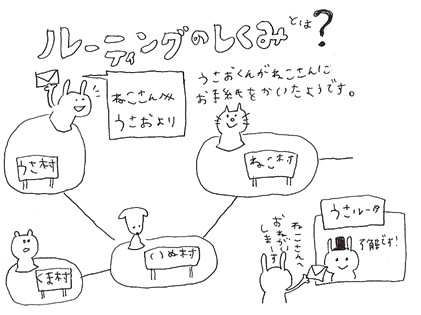 ルーティングのしくみとは?
ねこさんへ
うさおより
うさおくんがねこさんに
お手紙をかいたようです。
うさ村
ねこ村
くま村
いぬ村
ねこさんへ
おねがい
しまーす
うさルータ
了解です!